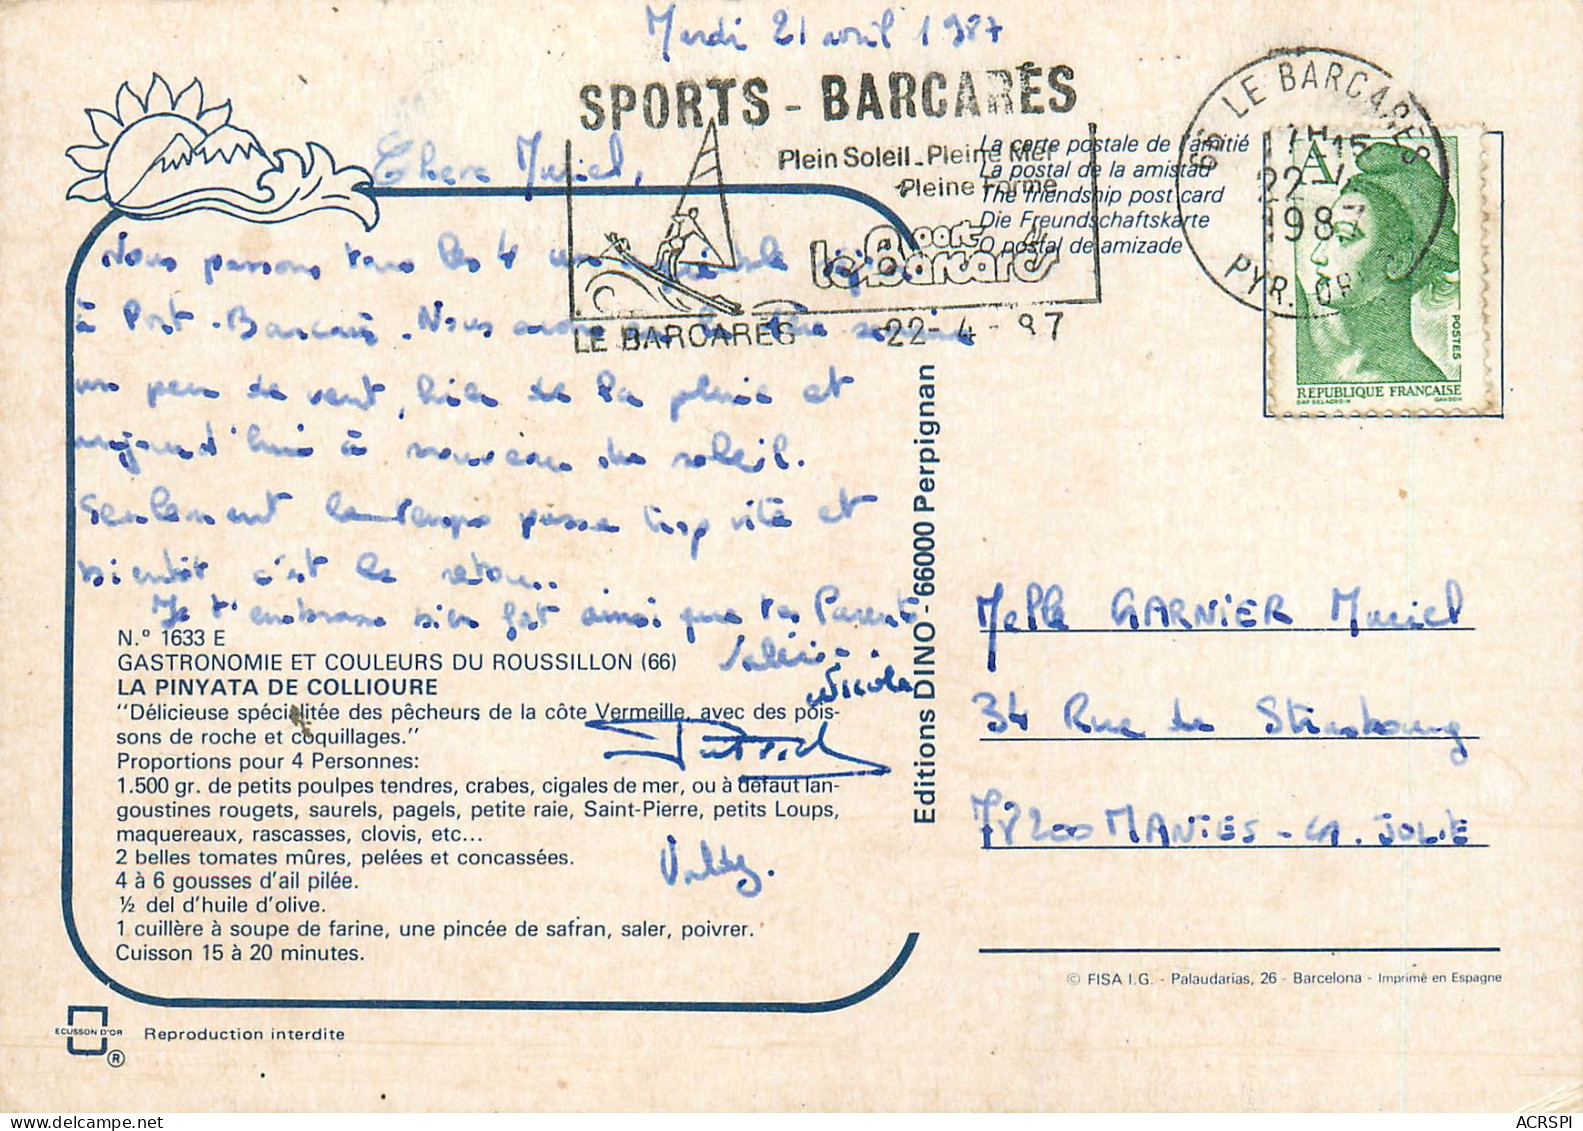 Mardi 21 avril 1987
SPORTS - BARCARÈS
Plein Soleil - Pleine Mer
Pleine Forme
Port
le Barcarès
LE BARCARES 22-4-87
66 LE BARCARES
17H15
22-4
1987
PYR. OR
A
POSTES
REPUBLIQUE FRANÇAISE
DAP. DELACROIX GANDON
La carte postale de l'amitié
La postal de la amistad
The friendship post card
Die Freundschaftskarte
O postal de amizade
Chere Muriel,
Nous passons tous les 4 un
à Port-Barcarès. Nous avons
un peu de vent, de la pluie et
aujourd'hui à nouveau du soleil.
Seulement le temps passe trop vite et
bientôt c'est le retour..
Je t'embrasse bien fort ainsi que tes Parents
Valérie.
Nicole
Patrick
N.° 1633 E
GASTRONOMIE ET COULEURS DU ROUSSILLON (66)
LA PINYATA DE COLLIOURE
"Délicieuse spécialitée des pêcheurs de la côte Vermeille, avec des pois-
sons de roche et coquillages."
Proportions pour 4 Personnes:
1.500 gr. de petits poulpes tendres, crabes, cigales de mer, ou à défaut lan-
goustines rougets, saurels, pagels, petite raie, Saint-Pierre, petits Loups,
maquereaux, rascasses, clovis, etc...
2 belles tomates mûres, pelées et concassées.
4 à 6 gousses d'ail pilée.
½ del d'huile d'olive.
1 cuillère à soupe de farine, une pincée de safran, saler, poivrer.
Cuisson 15 à 20 minutes.
Editions DINO - 66000 Perpignan
Melle GARNIER Muriel
34 Rue de Strasbourg
78200 MANTES-LA-JOLIE
© FISA I.G. - Palaudarias, 26 - Barcelona - Imprimé en Espagne
ECUSSON D'OR
®
Reproduction interdite
ACRSPI